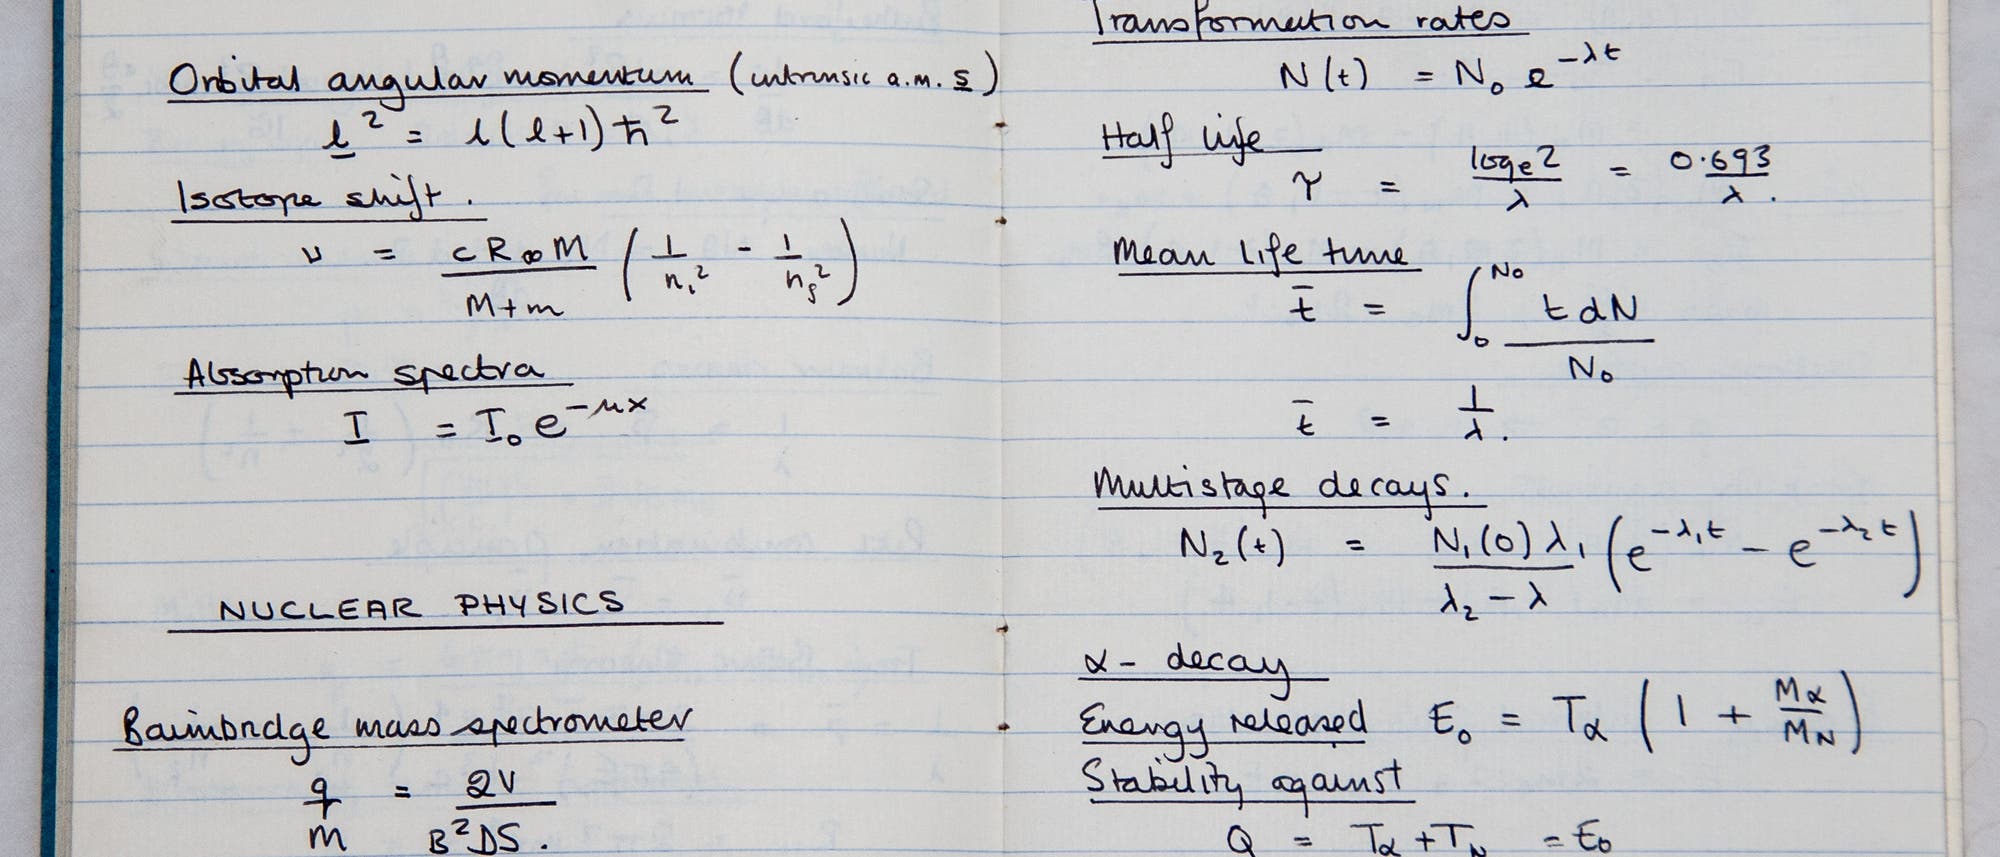 Orbital angular momentum (intrinsic a.m. s)
l² = l(l+1)ħ²
Isotope shift.
ν = cR∞M / M+m (1/nᵢ² - 1/n_f²)
Absorption spectra
I = I₀e^-μx
NUCLEAR PHYSICS
Bainbridge mass spectrometer
q/m = 2V / B²DS.
Transformation rates
N(t) = N₀e^-λt
Half life
τ = logₑ2/λ = 0.693/λ.
Mean life time
t̄ = ∫₀^N₀ t dN / N₀
t̄ = 1/λ.
Multistage decays.
N₂(t) = N₁(0)λ₁ / λ₂-λ (e^-λ₁t - e^-λ₂t)
α- decay
Energy released E₀ = Tα (1 + Mα/M_N)
Stability against
Q = Tα + T_N = E₀